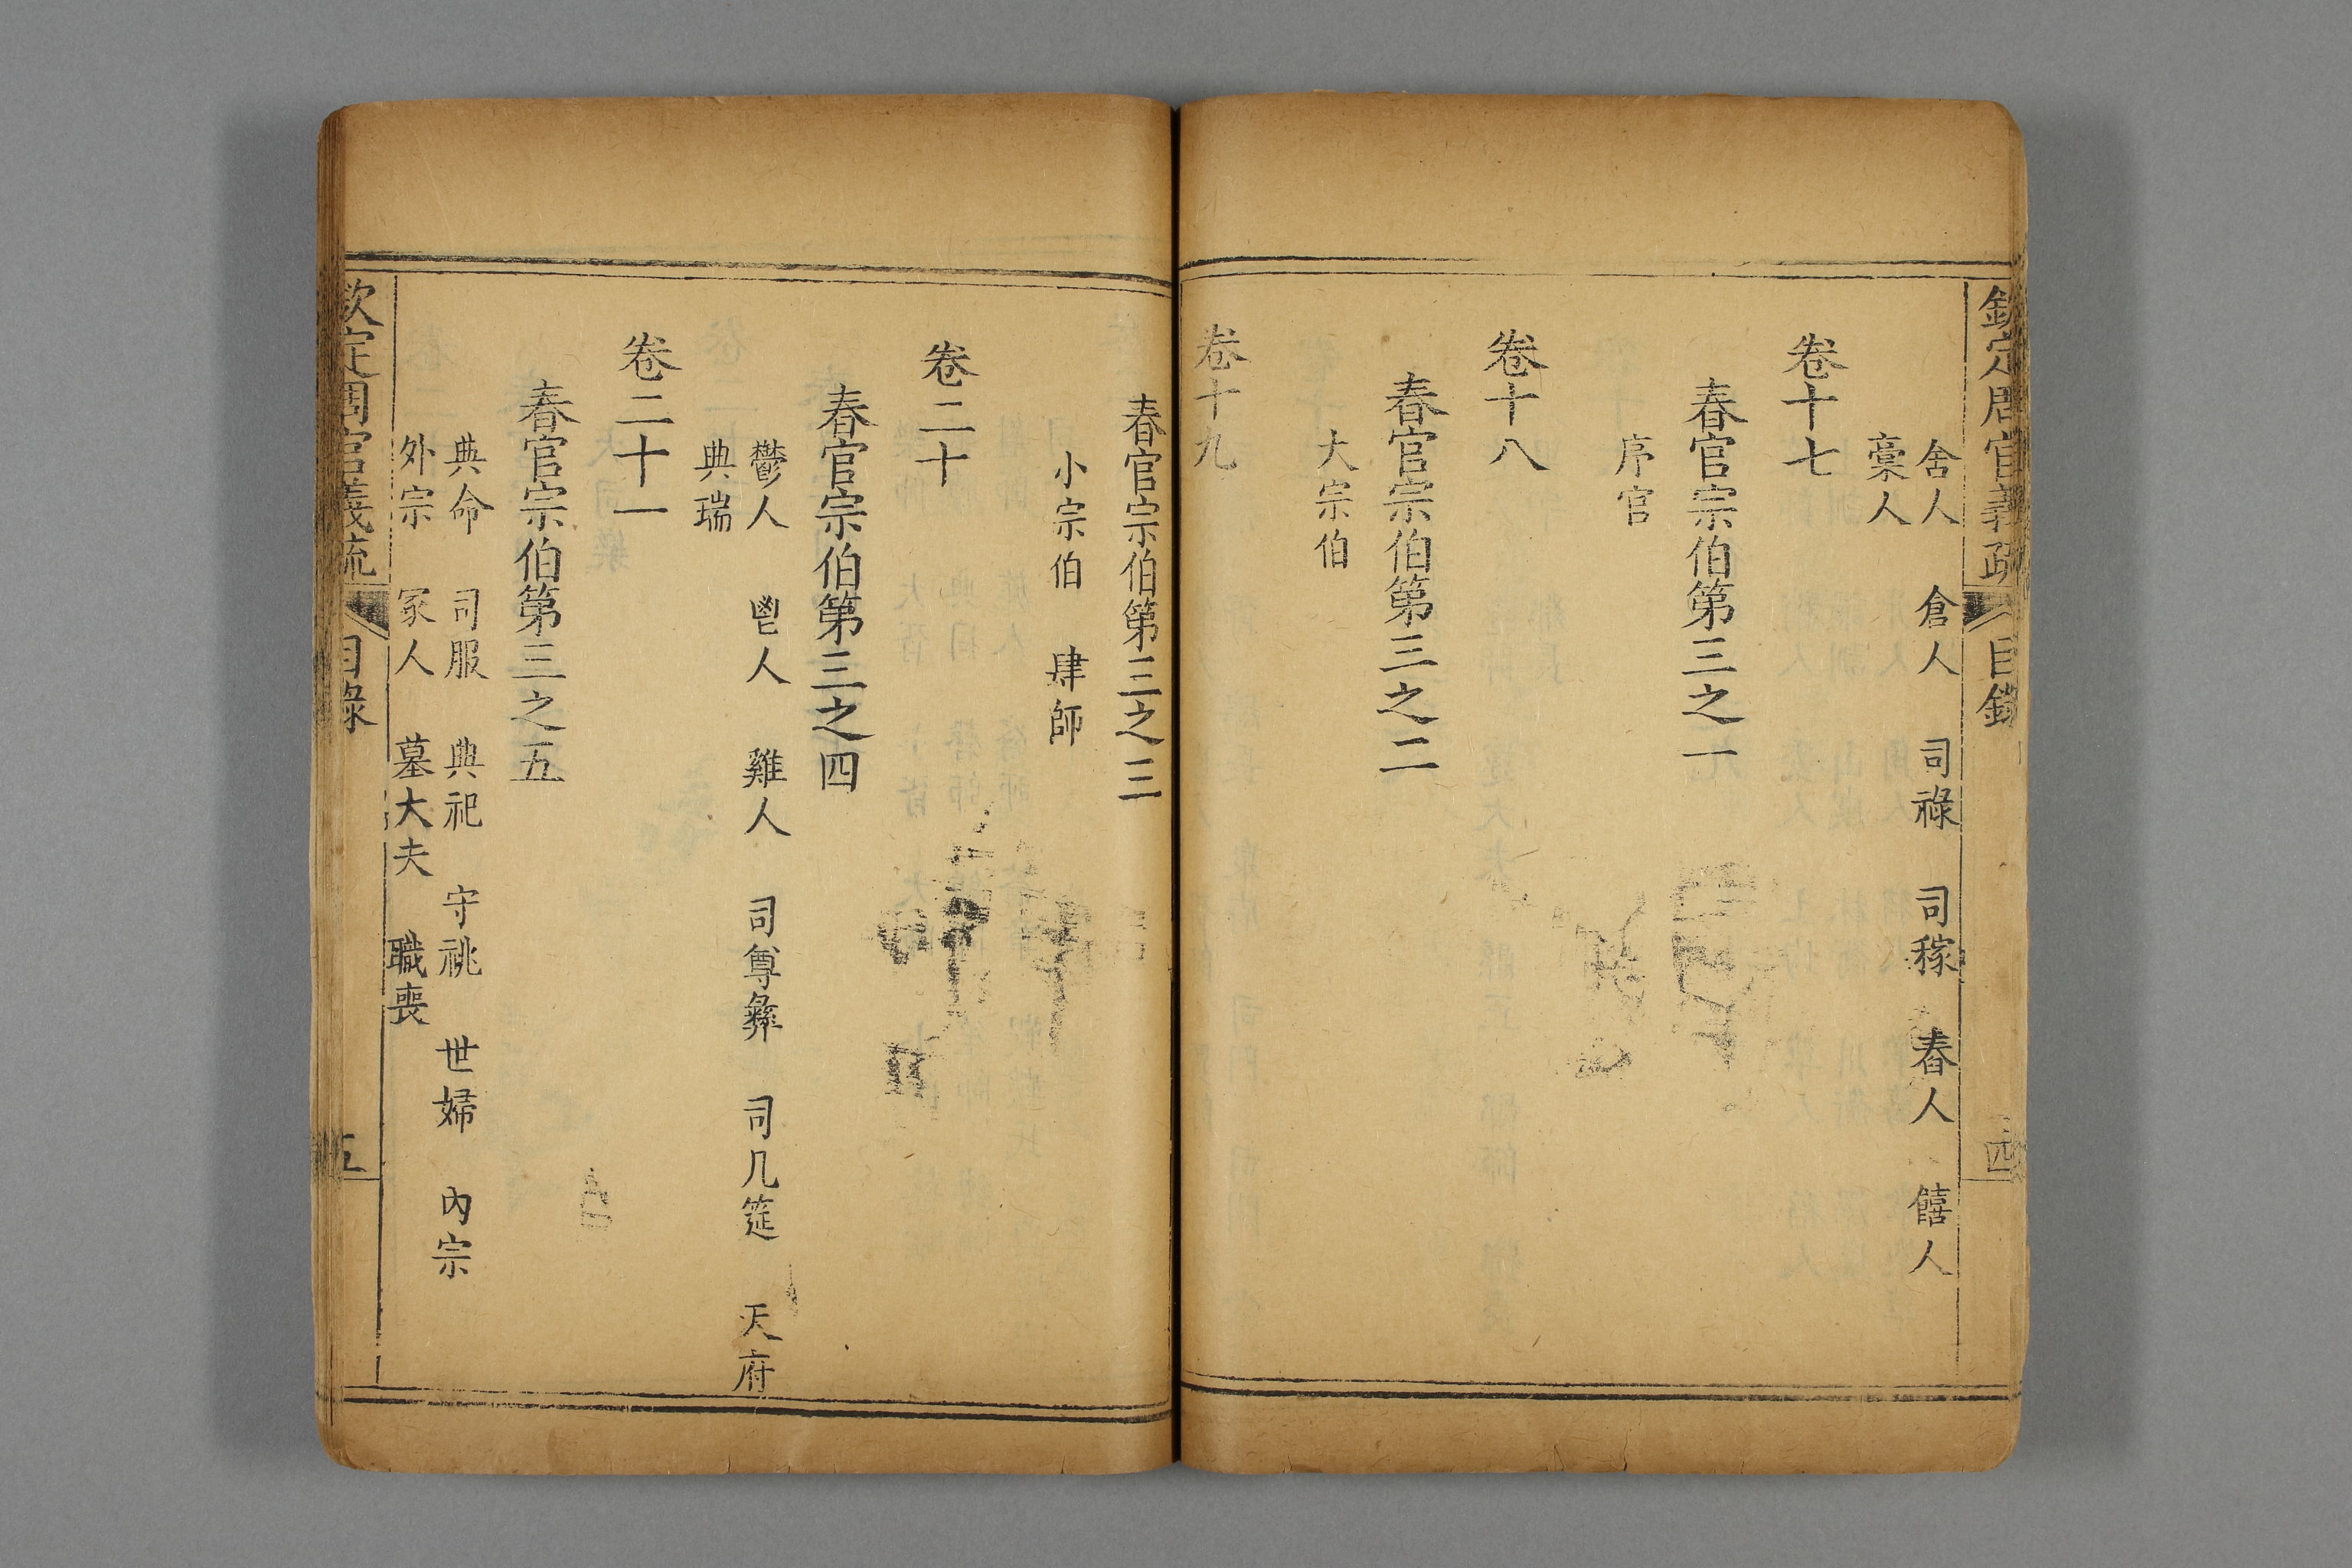 欽定周官義疏 目錄 四
舍人 倉人 司祿 司稼 舂人 饎人
槀人
卷十七
春官宗伯第三之一
序官
卷十八
春官宗伯第三之二
大宗伯
卷十九
春官宗伯第三之三
小宗伯 肆師
卷二十
春官宗伯第三之四
鬱人 鬯人 雞人 司尊彝 司几筵 天府
典瑞
卷二十一
春官宗伯第三之五
典命 司服 典祀 守祧 世婦 內宗
外宗 冢人 墓大夫 職喪
欽定周官義疏 目錄 五